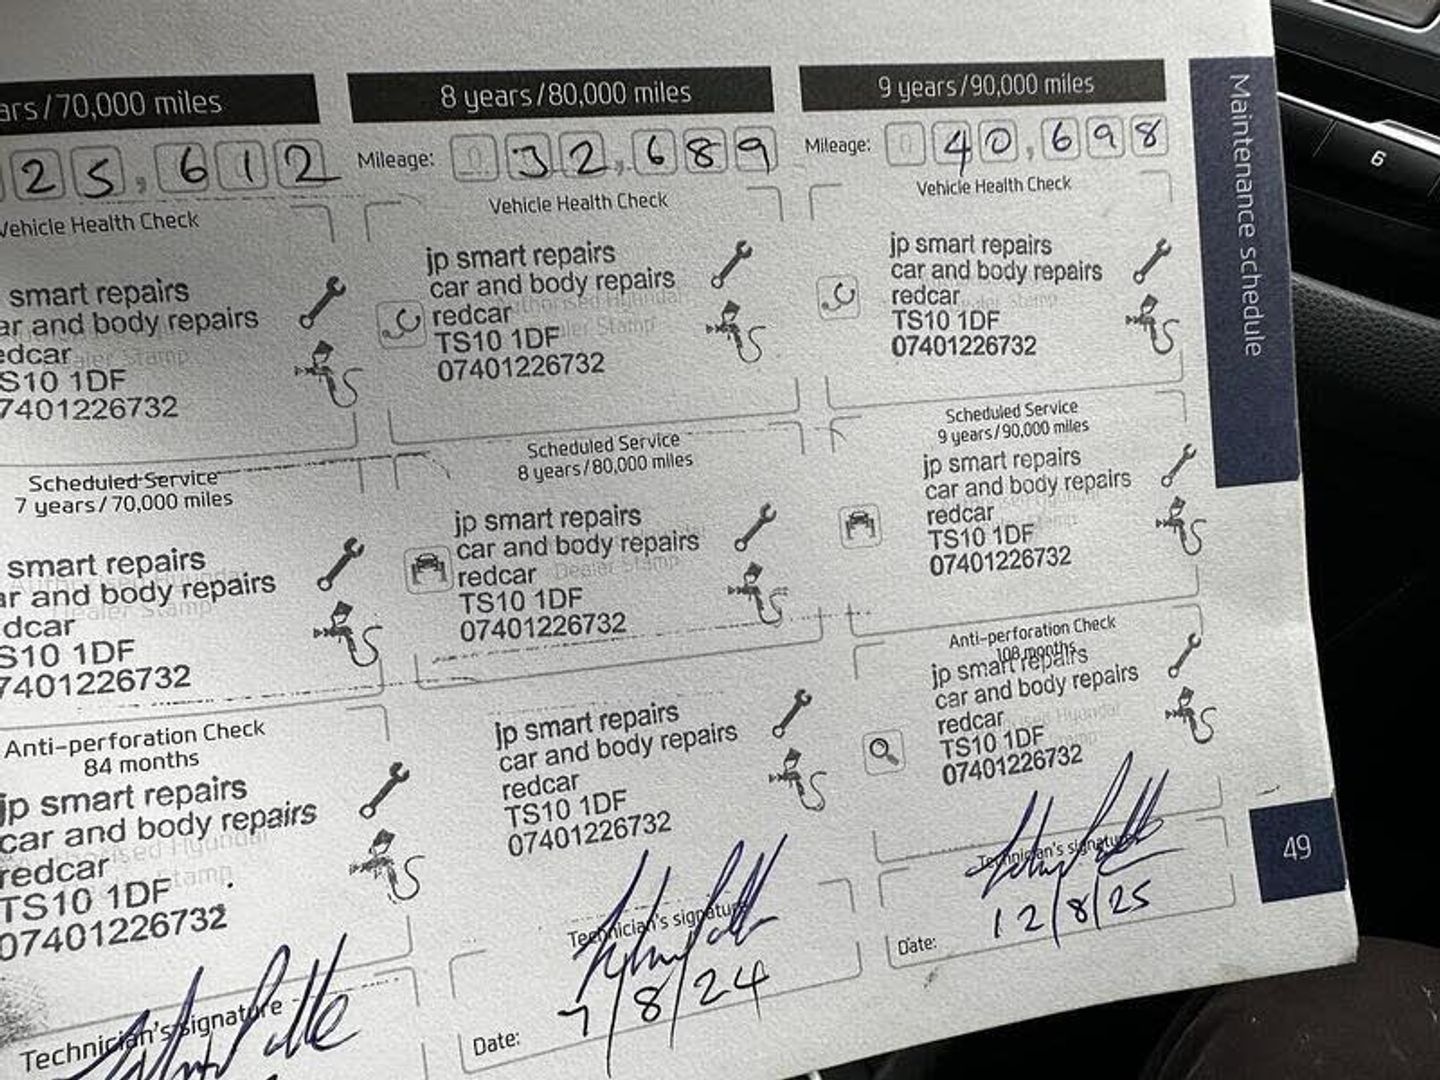 ars/70,000 miles
25,612
Vehicle Health Check
smart repairs
ar and body repairs
edcar
Dealer Stamp
S10 1DF
7401226732
Scheduled Service
7 years/70,000 miles
smart repairs
ar and body repairs
Dealer Stamp
dcar
S10 1DF
7401226732
Anti-perforation Check
84 months
jp smart repairs
car and body repairs
redcar
TS10 1DF
07401226732
Technician's signature
8 years/80,000 miles
Mileage: 032,689
Vehicle Health Check
jp smart repairs
car and body repairs
Authorised Hyundai
redcar
Dealer Stamp
TS10 1DF
07401226732
Scheduled Service
8 years/80,000 miles
jp smart repairs
car and body repairs
redcar
Dealer Stamp
TS10 1DF
07401226732
jp smart repairs
car and body repairs
redcar
TS10 1DF
07401226732
Technician's signature
Date: 7/8/24
9 years/90,000 miles
Mileage: 040,698
Vehicle Health Check
jp smart repairs
car and body repairs
redcar
Dealer Stamp
TS10 1DF
07401226732
Scheduled Service
9 years/90,000 miles
jp smart repairs
car and body repairs
redcar
TS10 1DF
07401226732
Anti-perforation Check
108 months
jp smart repairs
car and body repairs
redcar
TS10 1DF
07401226732
Technician's signature
Date: 12/8/25
Maintenance schedule
49
6